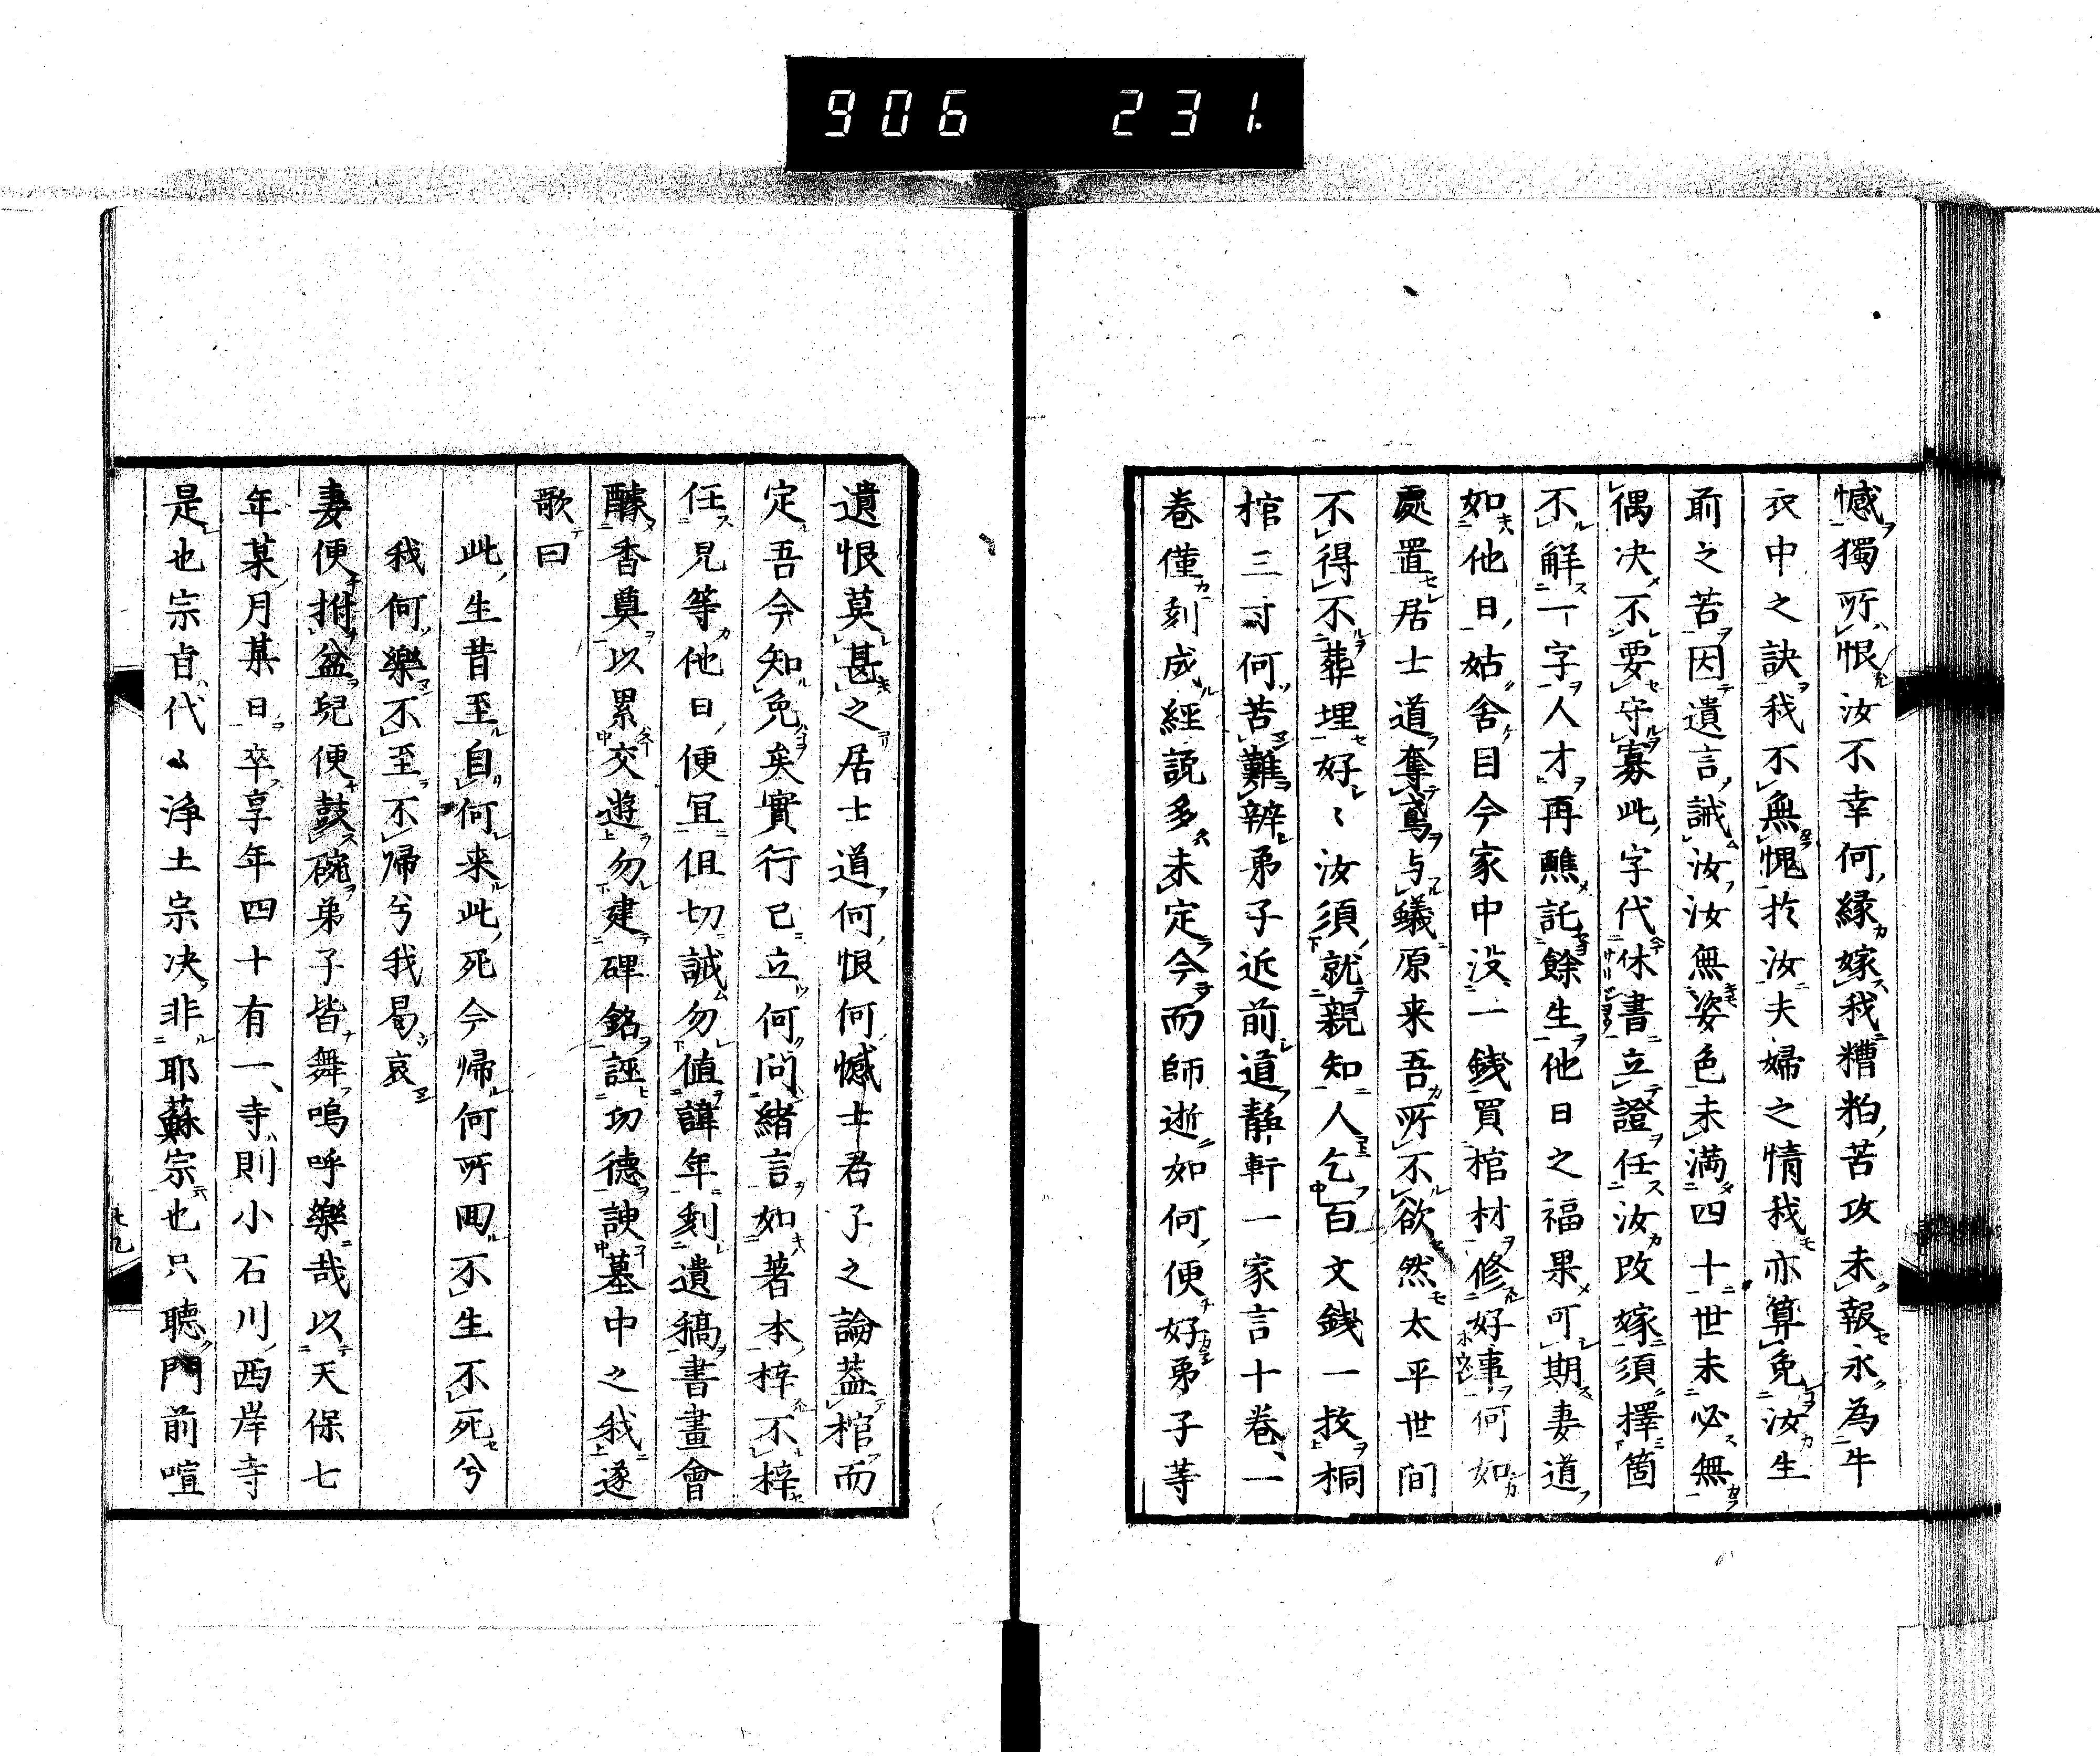 906 231.
憾獨所恨汝不幸何縁嫁我糟粕苦攻未報永為牛
衣中之訣我不無愧於汝夫婦之情我亦算免汝生
前之苦因遺言誡汝汝無姿色未満四十世未必無
偶决不要守寡此字代休書立證任汝改嫁須擇箇
不解丁字人才再醮託餘生他日之福果可期妻道
如他日姑舍目今家中没一錢買棺材修好事何如
處置居士道奪鳶与蟻原来吾所不欲然太平世间
不得不葬埋好〻汝須就親知人乞百文錢一技桐
棺三寸何苦難辨弟子近前道静軒一家言十巻一
巻僅刻成経説多未定今而師逝如何便好弟子等
遺恨莫甚之居士道何恨何憾士君子之論蓋棺而
定吾今知免矣實行已立何問緒言如著本梓不梓
任兄等他日便宜但切誠勿値諱年刻遺稿書畫會
醵香奠以累交遊勿建碑銘誣功德諛墓中之我遂
歌曰
此生昔至自何来此死今帰何所囬不生不死兮
我何樂不至不帰兮我曷哀
妻便拊盆兒便鼓碗弟子皆舞嗚呼樂哉以天保七
年某月某日卒享年四十有一寺則小石川西岸寺
是也宗旨代〻浄土宗决非耶蘇宗也只聴門前喧